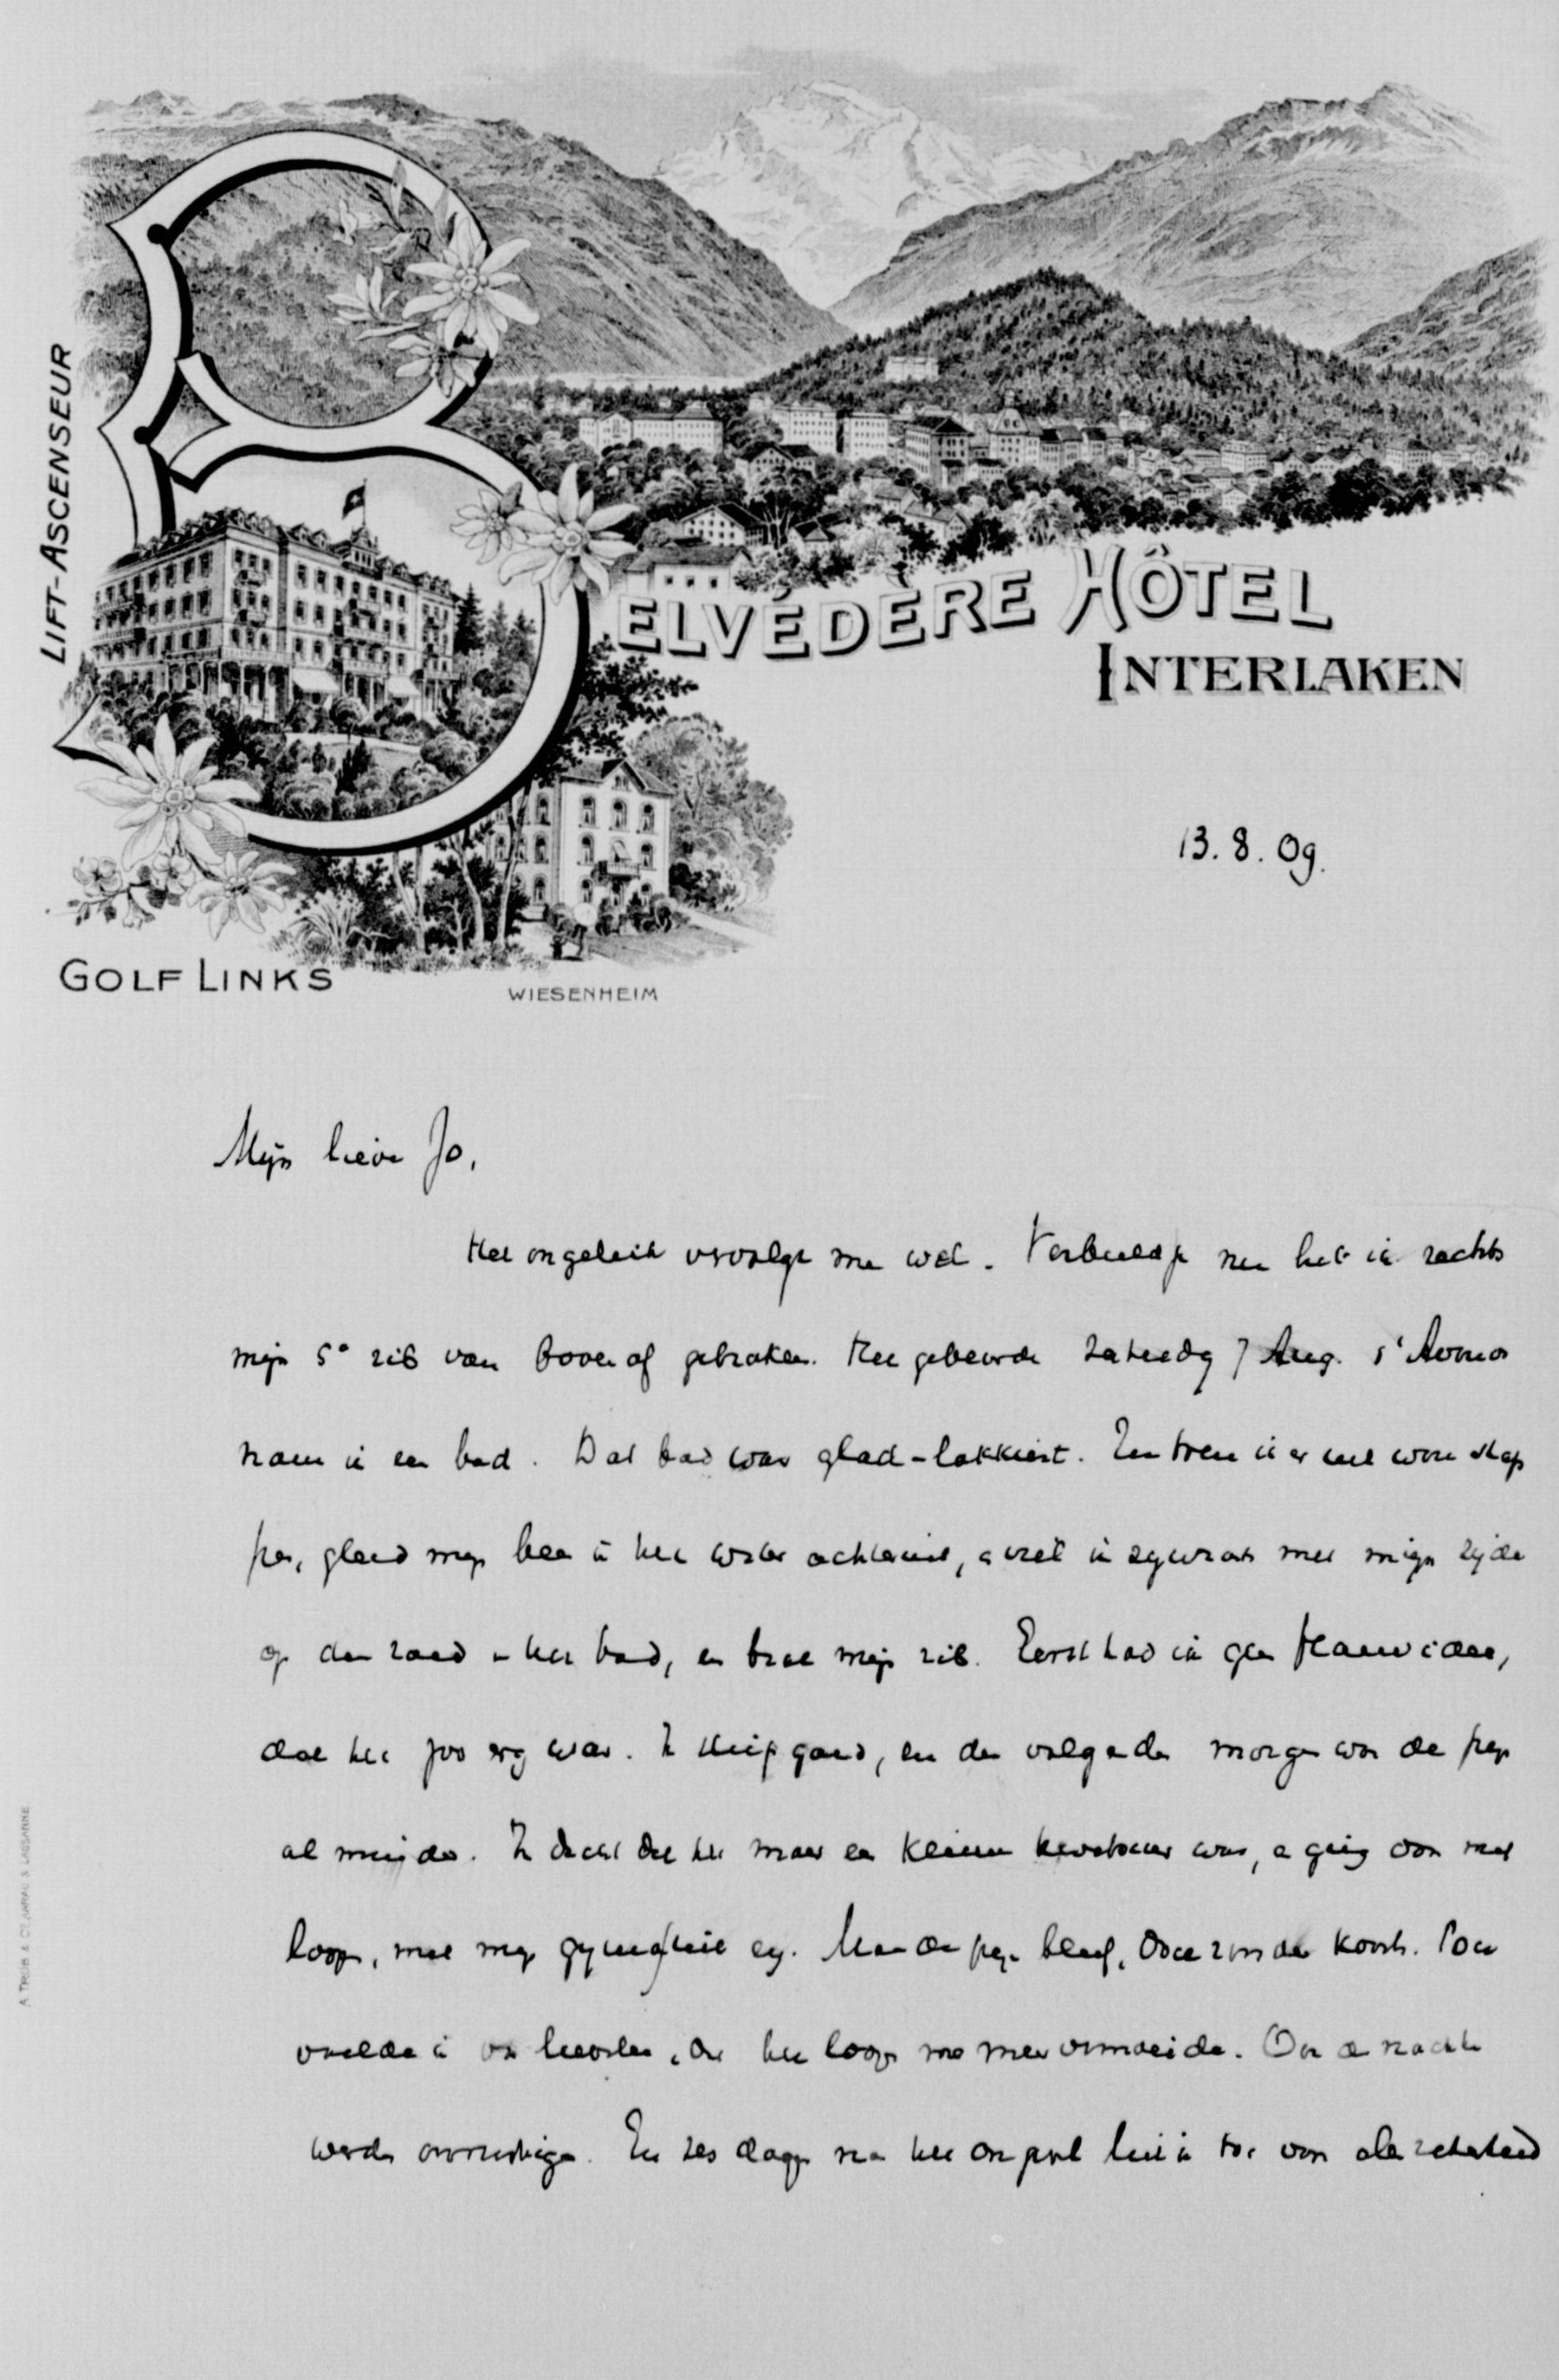 LIFT-ASCENSEUR
BELVÉDÈRE HÔTEL
INTERLAKEN
13.8.09.
GOLF LINKS
WIESENHEIM
Mijn lieve Jo,
Het ongeluk vervolgt me wel. Verbeeld je nu heb ik rechts
mijn 5e rib van boven af gebroken. Het gebeurde Zaterdag 7 Aug. s'Avonds
nam ik een bad. Dat bad was glad-lakkiert. En toen ik er uit wou stap
pen, gleed mijn been in het water achteruit, en viel ik zijwaarts met mijn zijde
op den rand van het bad, en brak mijn rib. Eerst had ik geen flauw idee,
dat het zoo erg was. Ik sliep goed, en den volgenden morgen was de pijn
al minder. Ik dacht dat het maar een kleine was, en ging door met
loopen, met mijn gymnastiek en. Maar de pijn bleef, ook zonder koorts. Ook
voelde ik dat het loopen me meer vermoeide. Ook de nachten
werden onrustiger. En zes dagen na het ongeval
A. TRÜB & CO. AARAU & LAUSANNE